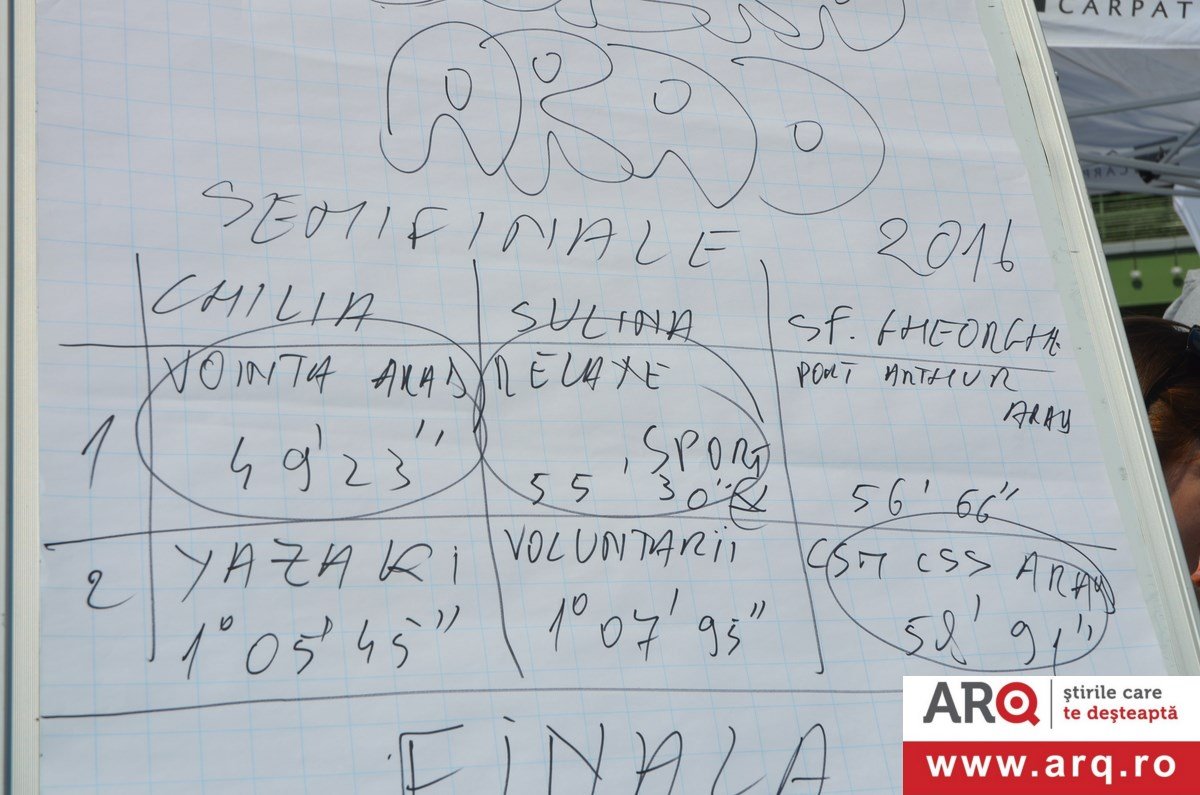 CARPAT
ARAD
SEMIFINALE 2016
CHILIA SULINA SF. GHEORGHE
1 VOINTA ARAD RELAXE PORT ARTHUR
SPORT ARAD
49' 23'' 55' 30'' 56' 66''
2 YAZAKI VOLUNTARII CSM CSS ARAD
1° 05' 45'' 1° 07' 95'' 58' 91''
FINALA
ARQ știrile care
te deșteaptă
www.arq.ro